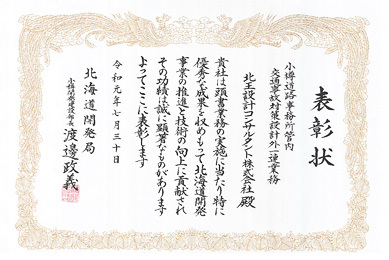 表彰状
小樽道路事務所管内
交通事故対策設計外一連業務
北王設計コンサルタント株式会社殿
貴社は頭書業務の実施に当たり特に
優秀な成果を収めもって北海道開発
事業の推進と技術の向上に貢献され
その功績は誠に顕著なものがあります
よってここに表彰します
令和元年七月三十日
北海道開発局
小樽開発建設部長 渡邊政義